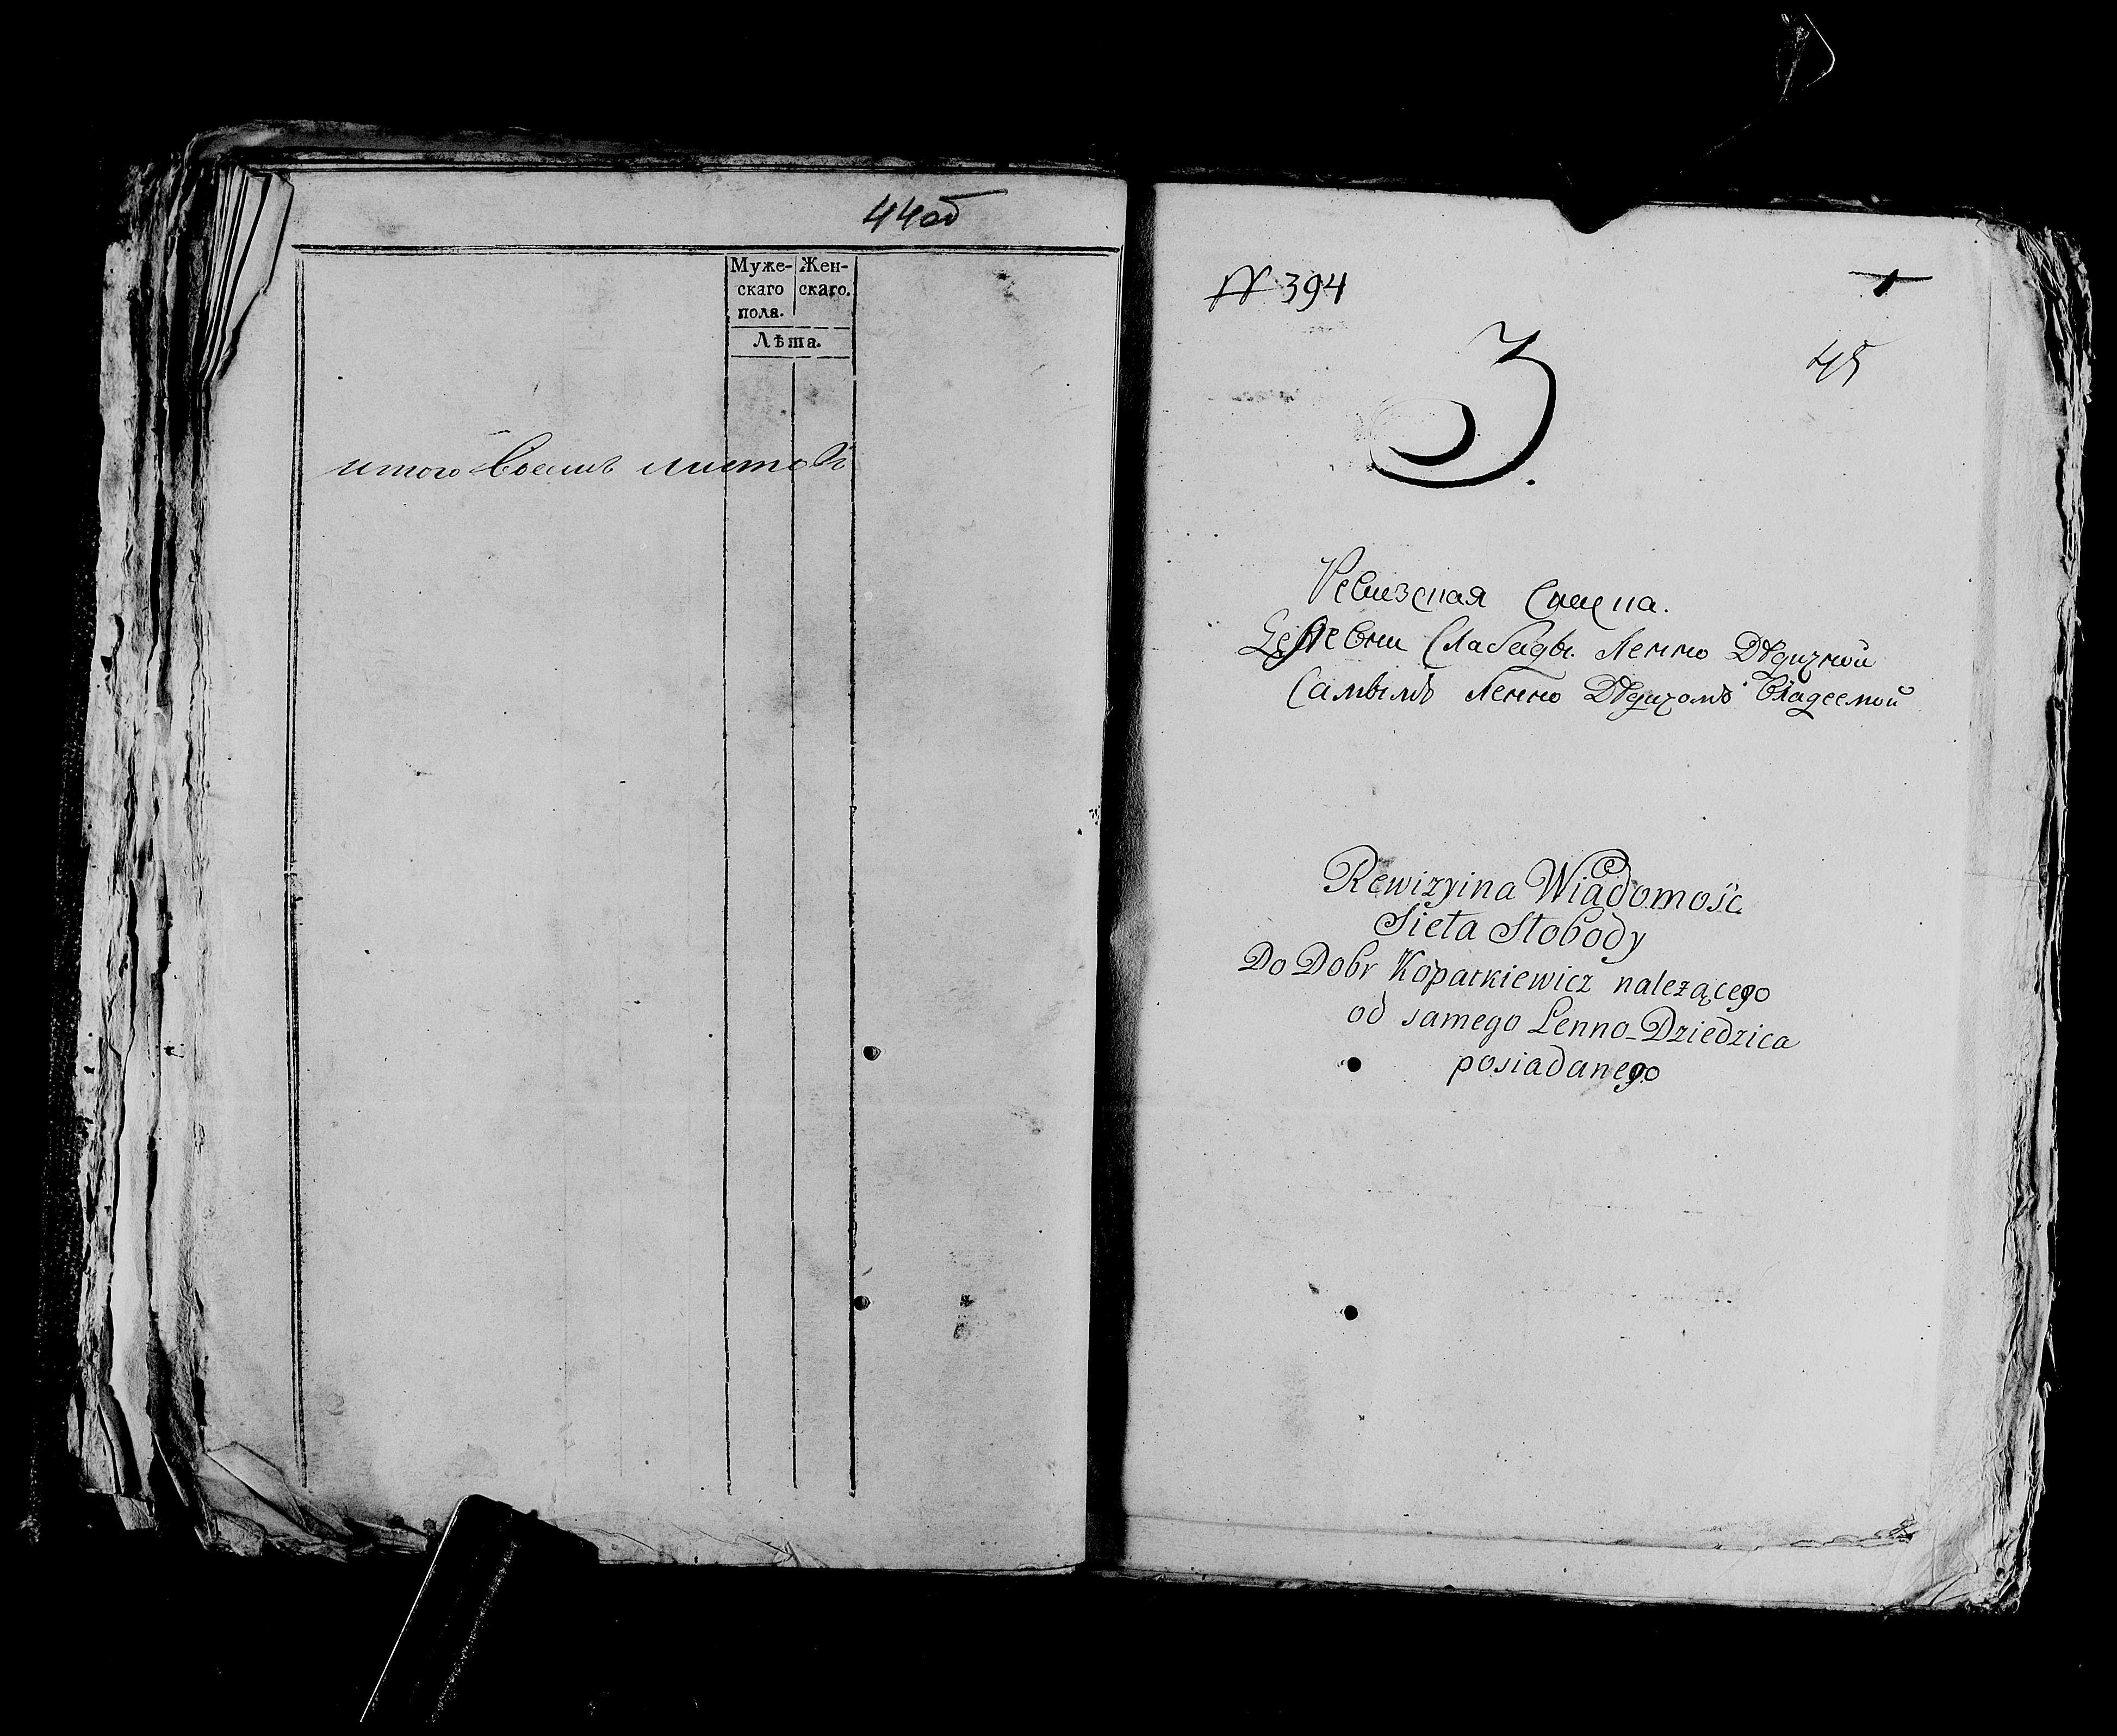 44об
Муже- Жен-
скаго скаго.
пола.
Лѣта.
итого восемь листовъ
№ 394
1
45
3.
Ревизская Сказка.
Деревни Слабады Ленно Дѣдичной
Самымъ Ленно Дѣдичомъ владеемой
Rewizyina Wiadomość
Sieła Słobody
Do Dobr Kopatkiewicz należącego
od samego Lenno-Dziedzica
posiadanego